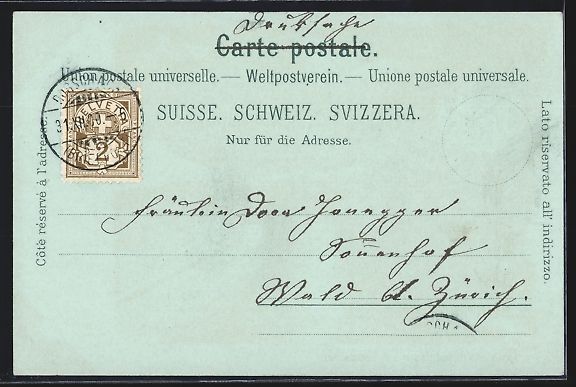 Drucksache
Carte postale.
Union postale universelle. — Weltpostverein. — Unione postale universale.
SUISSE. SCHWEIZ. SVIZZERA.
Nur für die Adresse.
Côté réservé à l'adresse.
Lato riservato all' indirizzo.
HELVETIA
2
Fräulein Dora Honegger
Sonnenhof
Wald Ct. Zürich.